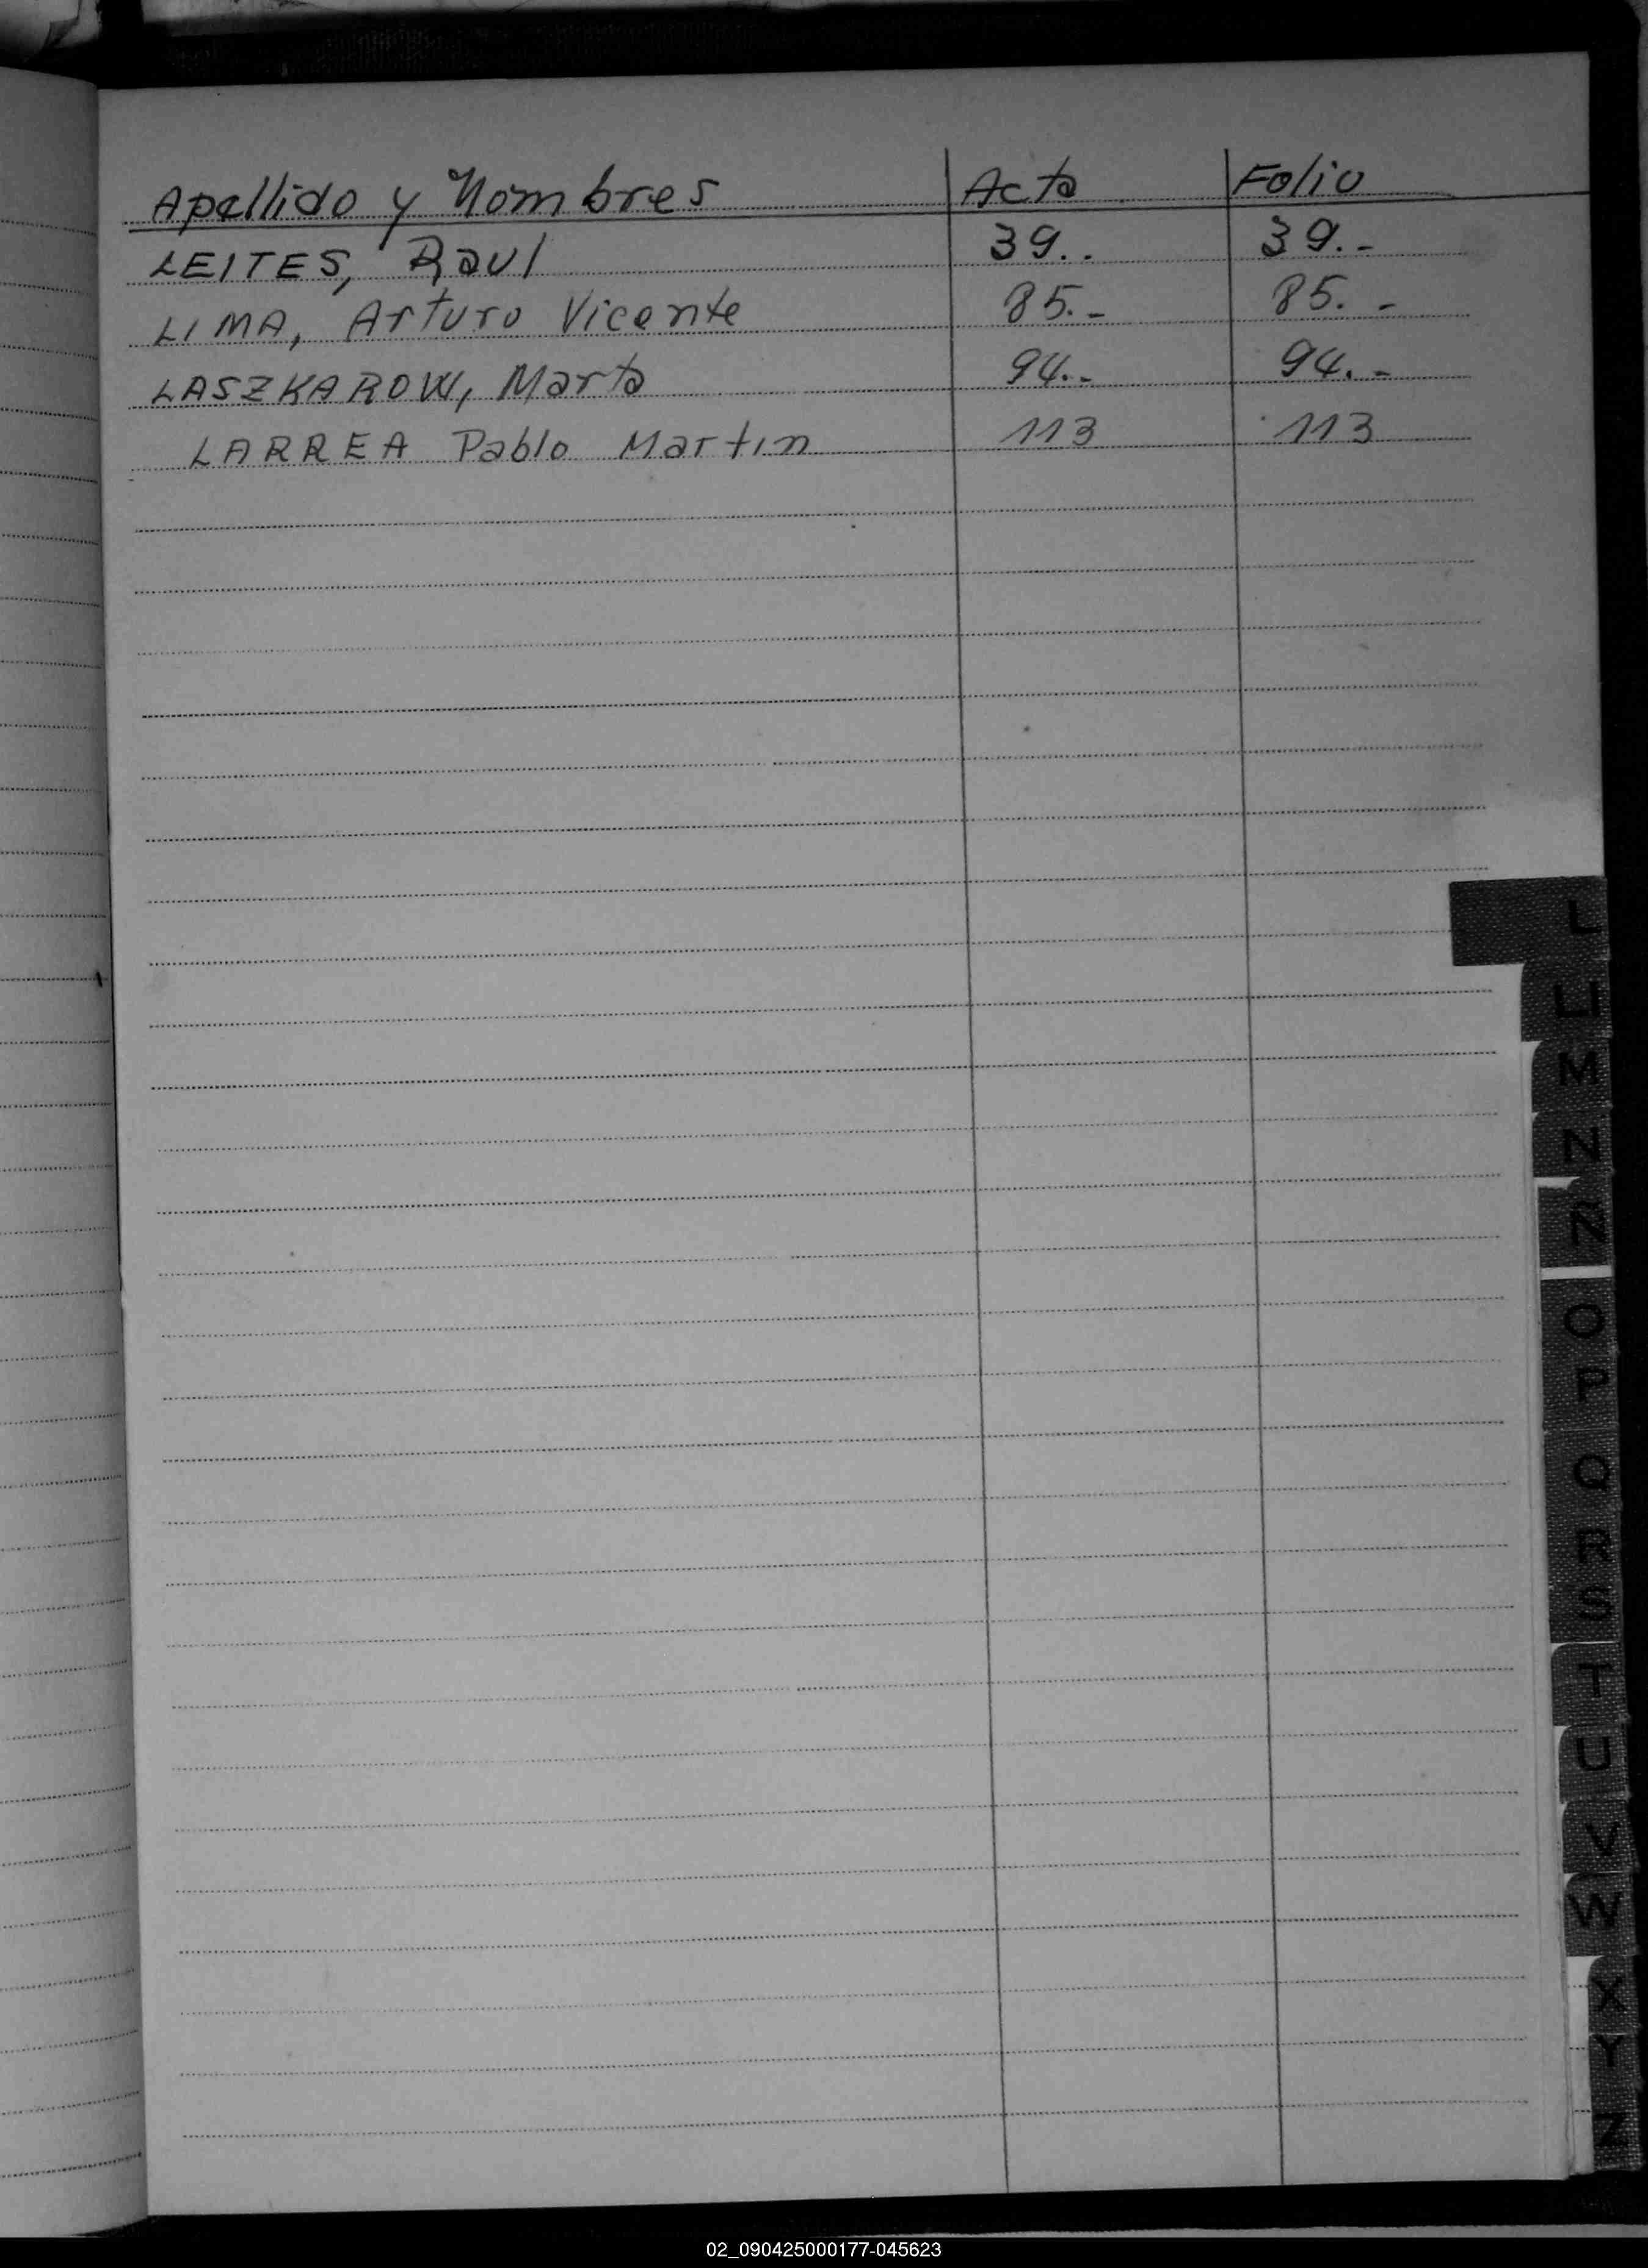 Apellido y Nombres Acta Folio
LEITES, Raul 39.. 39.-
LIMA, Arturo Vicente 85.- 85.-
LASZKAROW, Marta 94.- 94.-
LARREA Pablo Martin 113 113
L
Ll
M
N
Ñ
O
P
Q
R
S
T
U
V
W
X
Y
Z
02_090425000177-045623